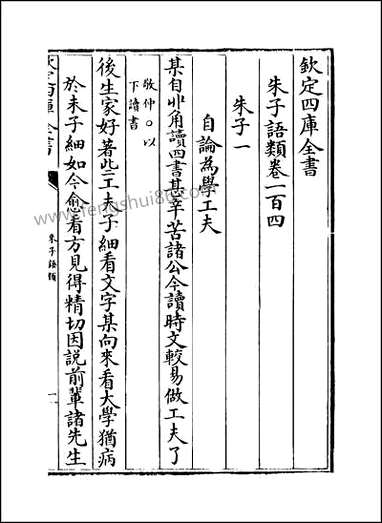 欽定四庫全書
朱子語類卷一百四
朱子一
自論為學工夫
某自丱角讀四書甚辛苦諸公今讀時文較易做工夫了
敬仲○以
下讀書
後生家好著些工夫子細看文字某向來看大學猶病
於未子細如今愈看方見得精切因說前輩諸先生
朱子語類
一